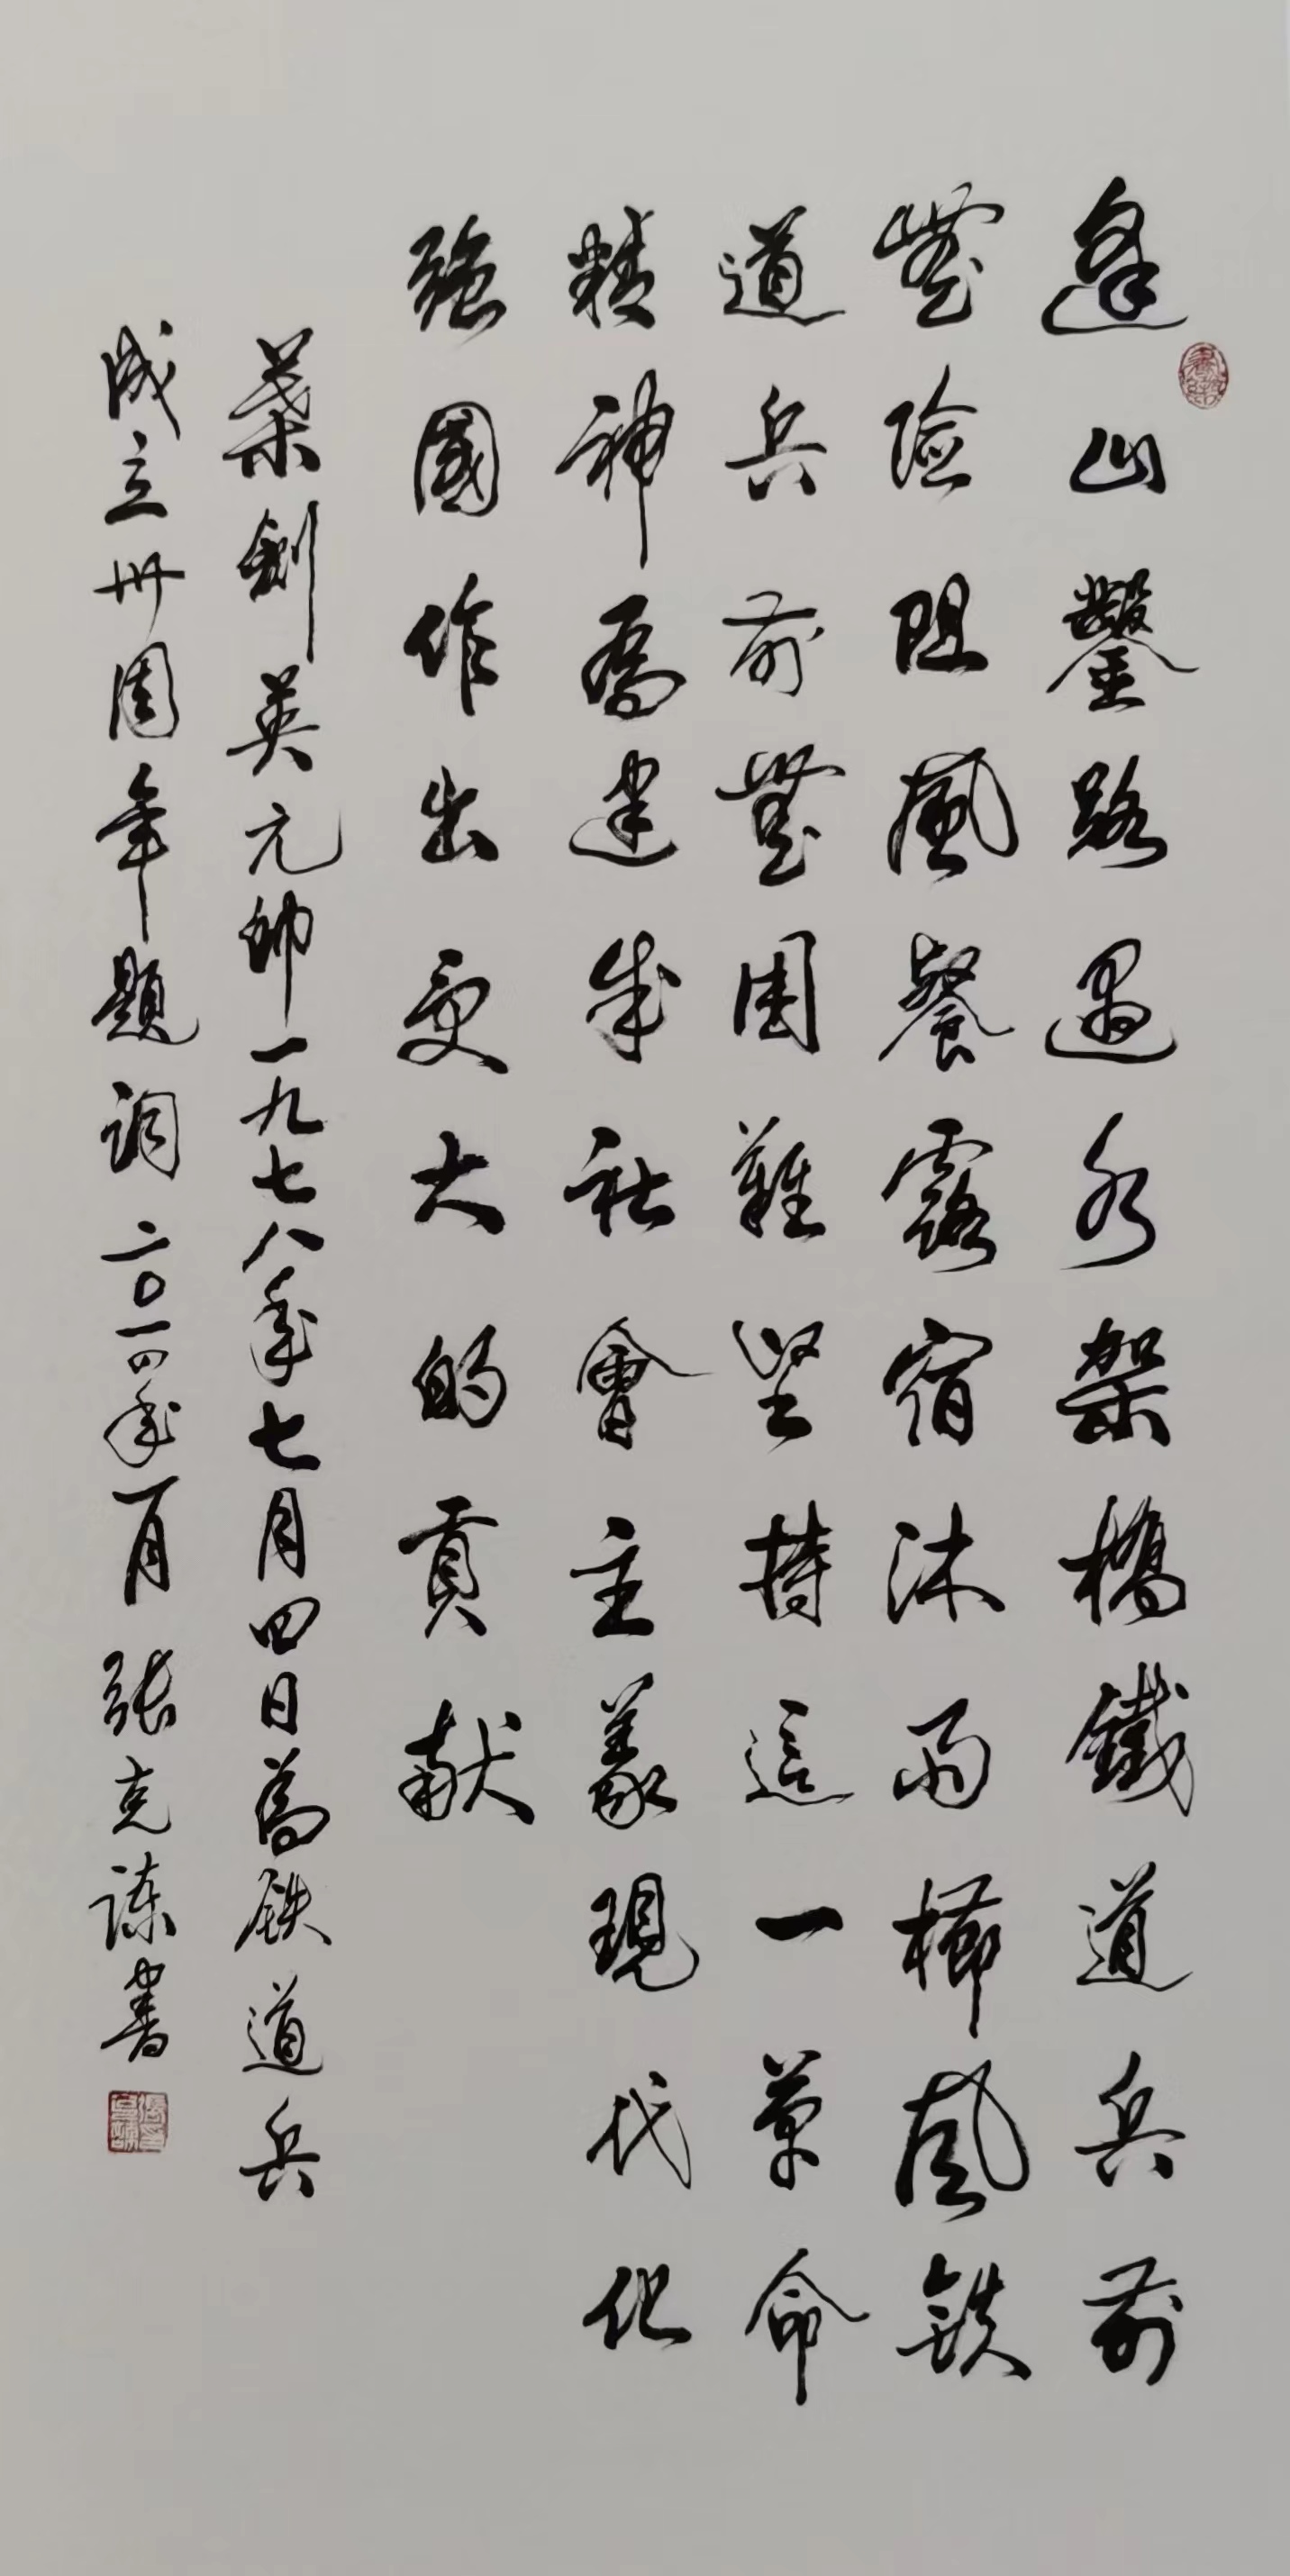 逢山鑿路遇水架橋鐵道兵前
無險阻風餐露宿沐雨櫛風鉄
道兵前無困難堅持這一革命
精神為建成社會主義現代化
強國作出更大的貢献
葉劍英元帥一九七八年七月四日為鉄道兵
成立卅周年題詞二〇一四年一月張克諫書